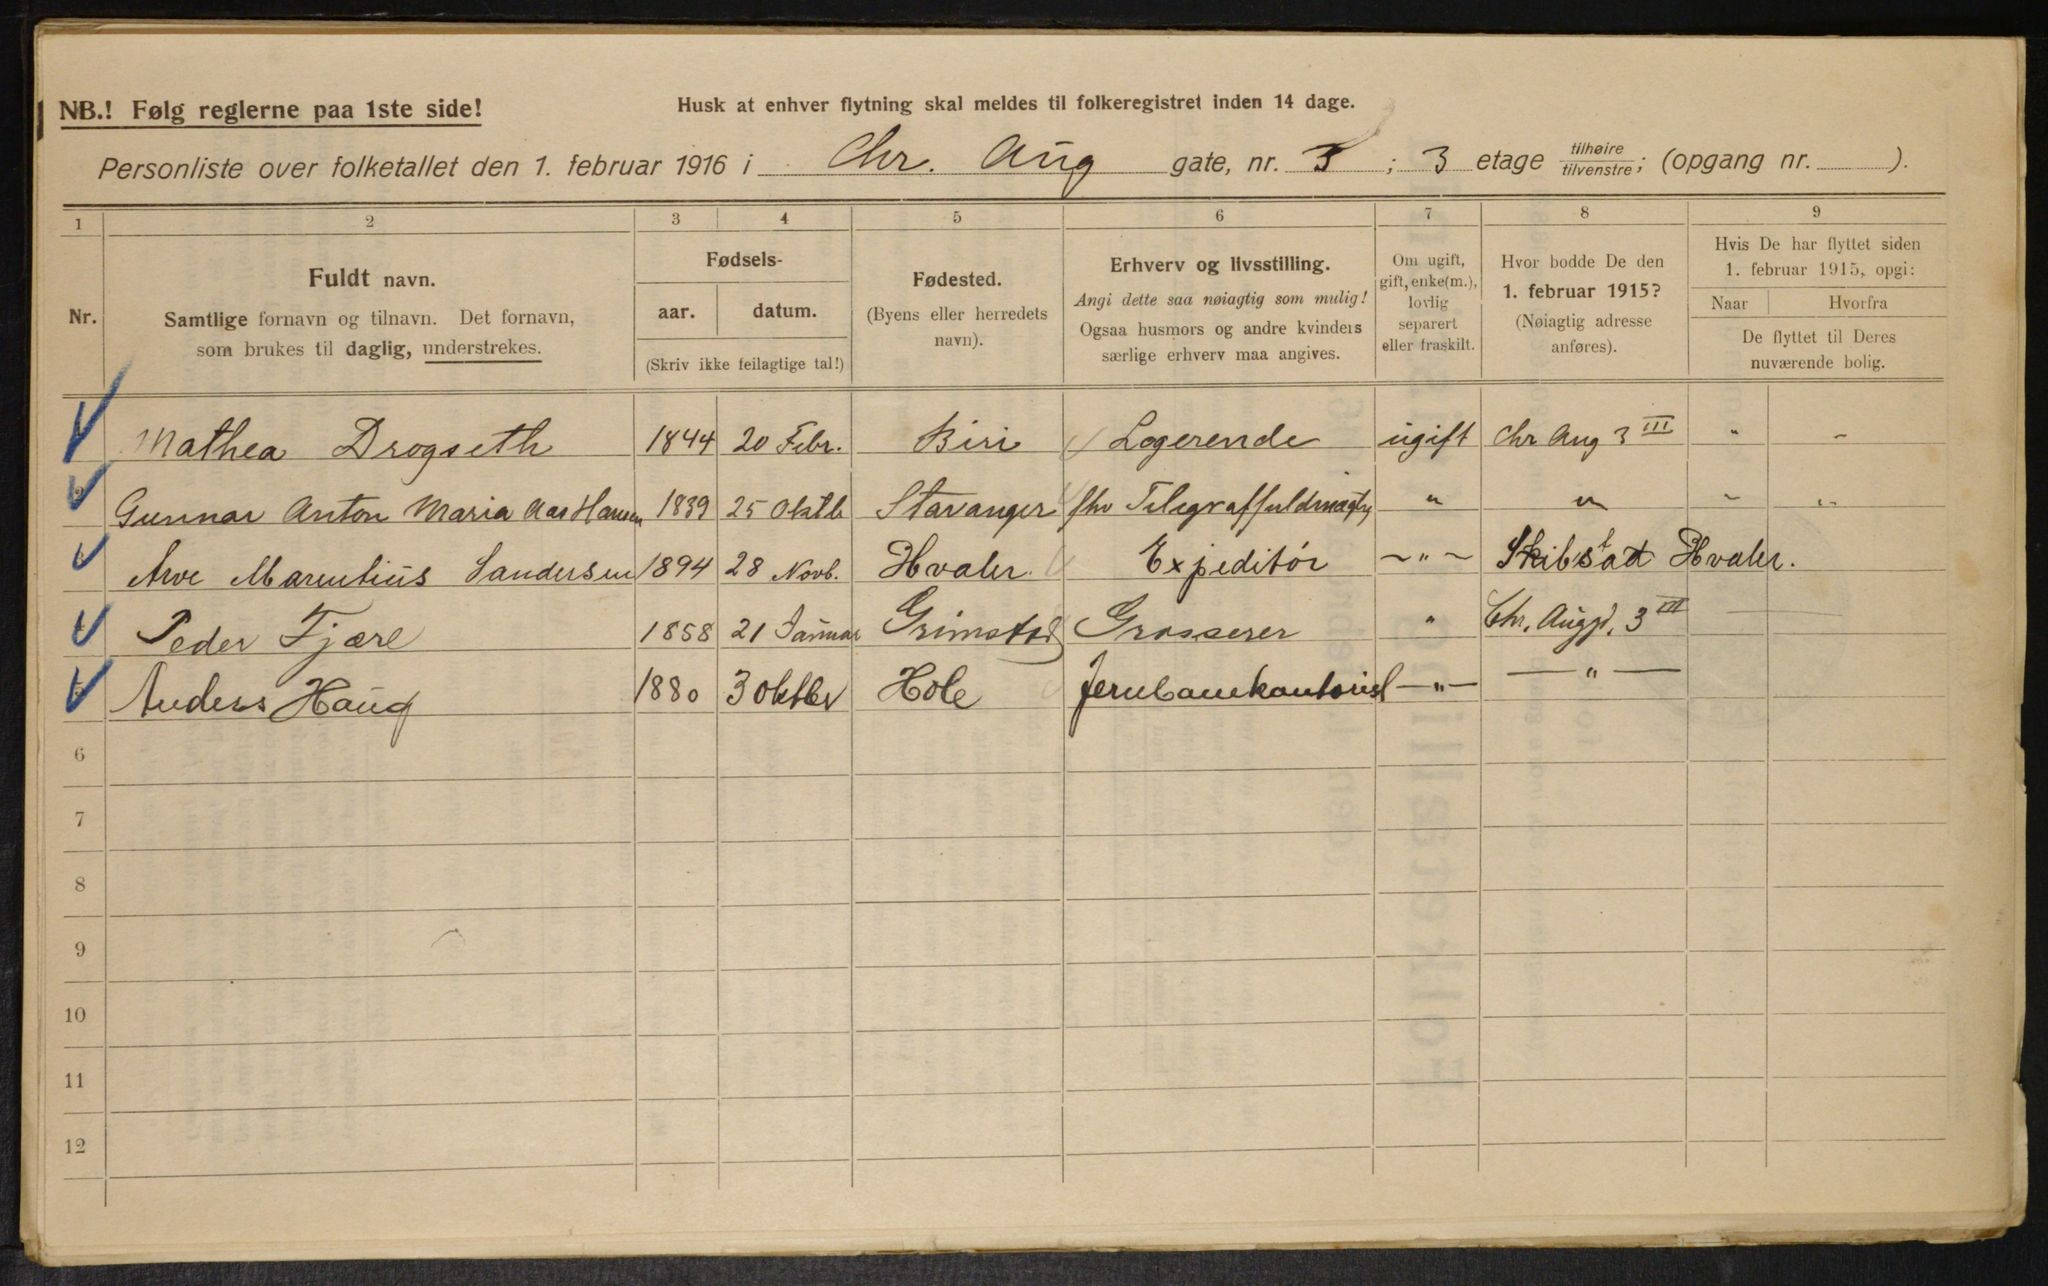 NB.! Følg reglerne paa 1ste side!
Husk at enhver flytning skal meldes til folkeregistret inden 14 dage.
Personliste over folketallet den 1. februar 1916 i Chr. Aug gate, nr. 3; 3 etage tilhøire/tilvenstre; (opgang nr. ).
1 2 3 4 5 6 7 8 9
Nr.
Fuldt navn.
Samtlige fornavn og tilnavn. Det fornavn,
som brukes til daglig, understrekes.
Fødsels-
aar. datum.
(Skriv ikke feilagtige tal!)
Fødested.
(Byens eller herredets
navn).
Erhverv og livsstilling.
Angi dette saa nøiagtig som mulig!
Ogsaa husmors og andre kvinders
særlige erhverv maa angives.
Om ugift,
gift, enke(m.),
lovlig
separert
eller fraskilt.
Hvor bodde De den
1. februar 1915?
(Nøiagtig adresse
anføres).
Hvis De har flyttet siden
1. februar 1915, opgi:
Naar Hvorfra
De flyttet til Deres
nuværende bolig.
Mathea Drogseth 1844 20 Febr. Biri Logerende ugift Chr Aug 3 III " "
2 Gunnar Anton Maria Aas Hansen 1839 25 Oktb Stavanger fhv Telegraffuldmægtig " " " "
Arve Marentius Sandersen 1894 28 Novb. Hvaler. Expeditør — " — Skibstad Hvaler.
4 Peder Fjære 1858 21 Januar Grimstad Grosserer " Chr. Auggt. 3 III —
5 Anders Haug 1880 3 oktbr Hole Jernbanekontorist — " — — " —
6
7
8
9
10
11
12